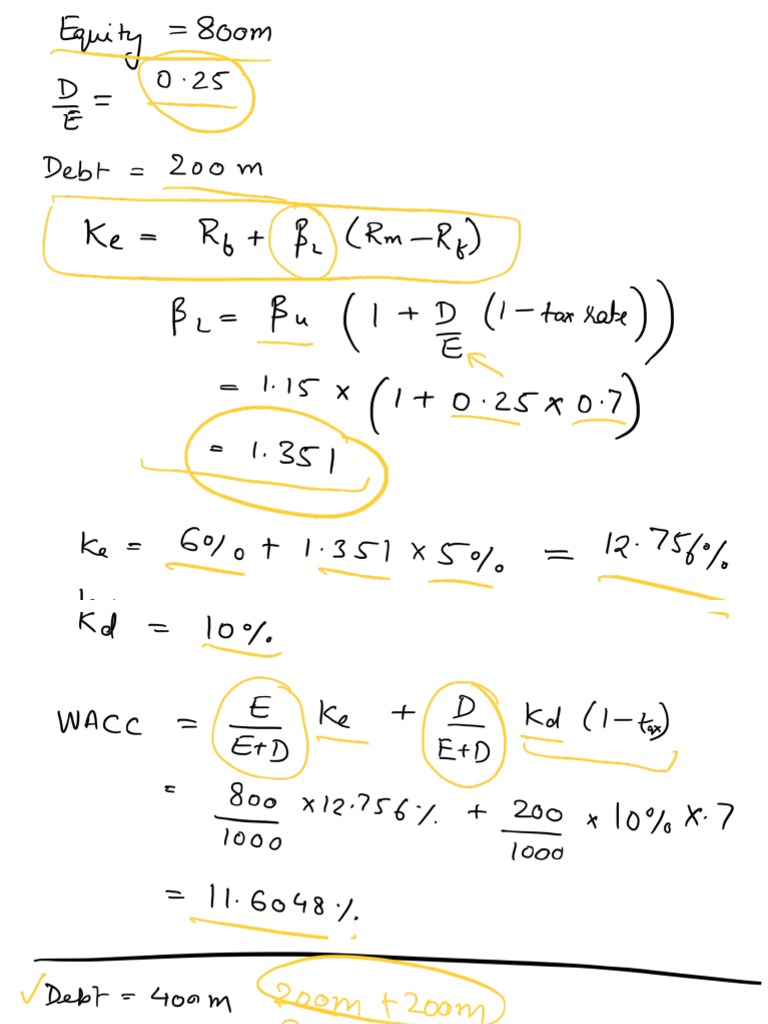 Equity = 800m
D/E = 0.25
Debt = 200m
Ke = Rf + βL (Rm – Rf)
βL = βu (1 + D/E (1 – tax rate))
= 1.15 × (1 + 0.25 × 0.7)
= 1.351
Ke = 6% + 1.351 × 5% = 12.756%
Kd = 10%
WACC = E/E+D Ke + D/E+D Kd (1 – tax)
= 800/1000 × 12.756% + 200/1000 × 10% × .7
= 11.6048%.
✓Debt = 400m 200m + 200m